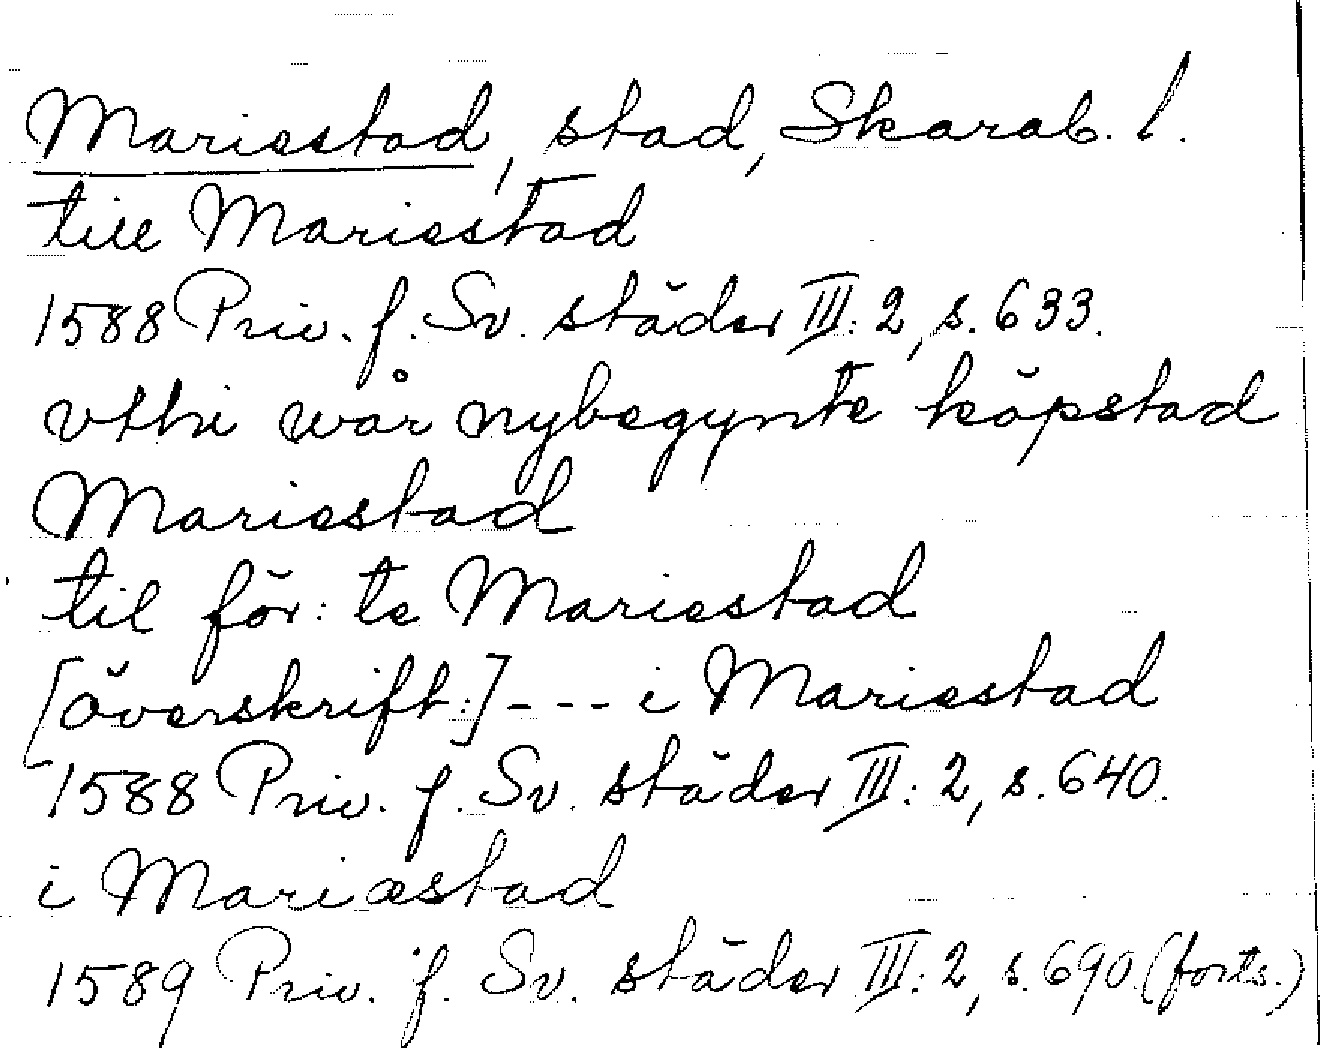 Mariestad, stad, Skarab. l.
till Mariestad
1588 Priv. f. Sv. städer III: 2, s. 633.
vthi wår nybegynte köpstad
Mariestad
til för: te Mariestad
[överskrift:] - - - i Mariestad
1588 Priv. f. Sv. städer III: 2, s. 640.
i Mariæstad
1589 Priv. f. Sv. städer III: 2, s. 690. (forts.)